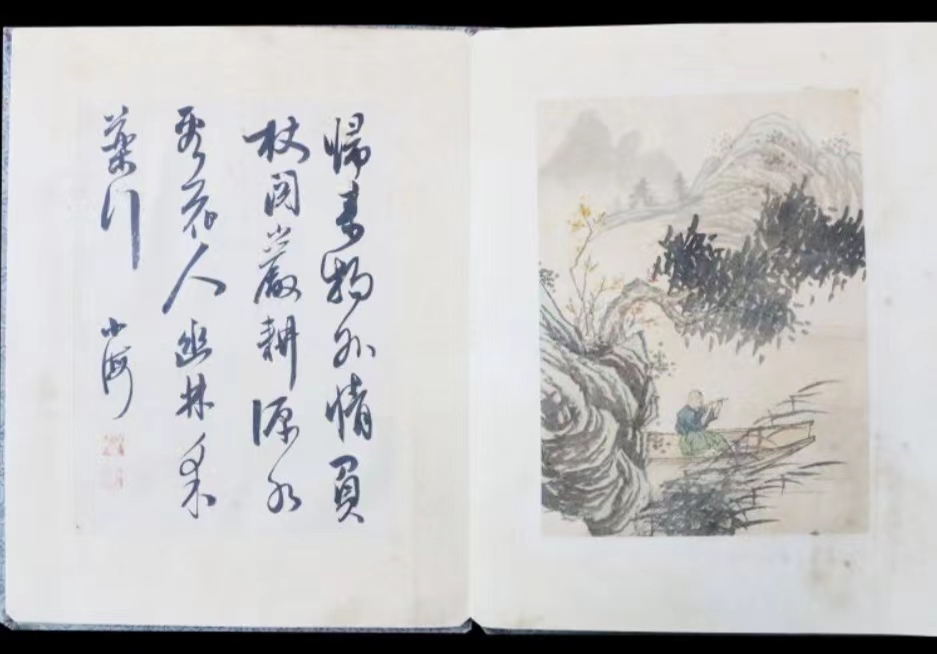 歸來物外情負
杖閱巖耕源水
看花人幽林采
藥行